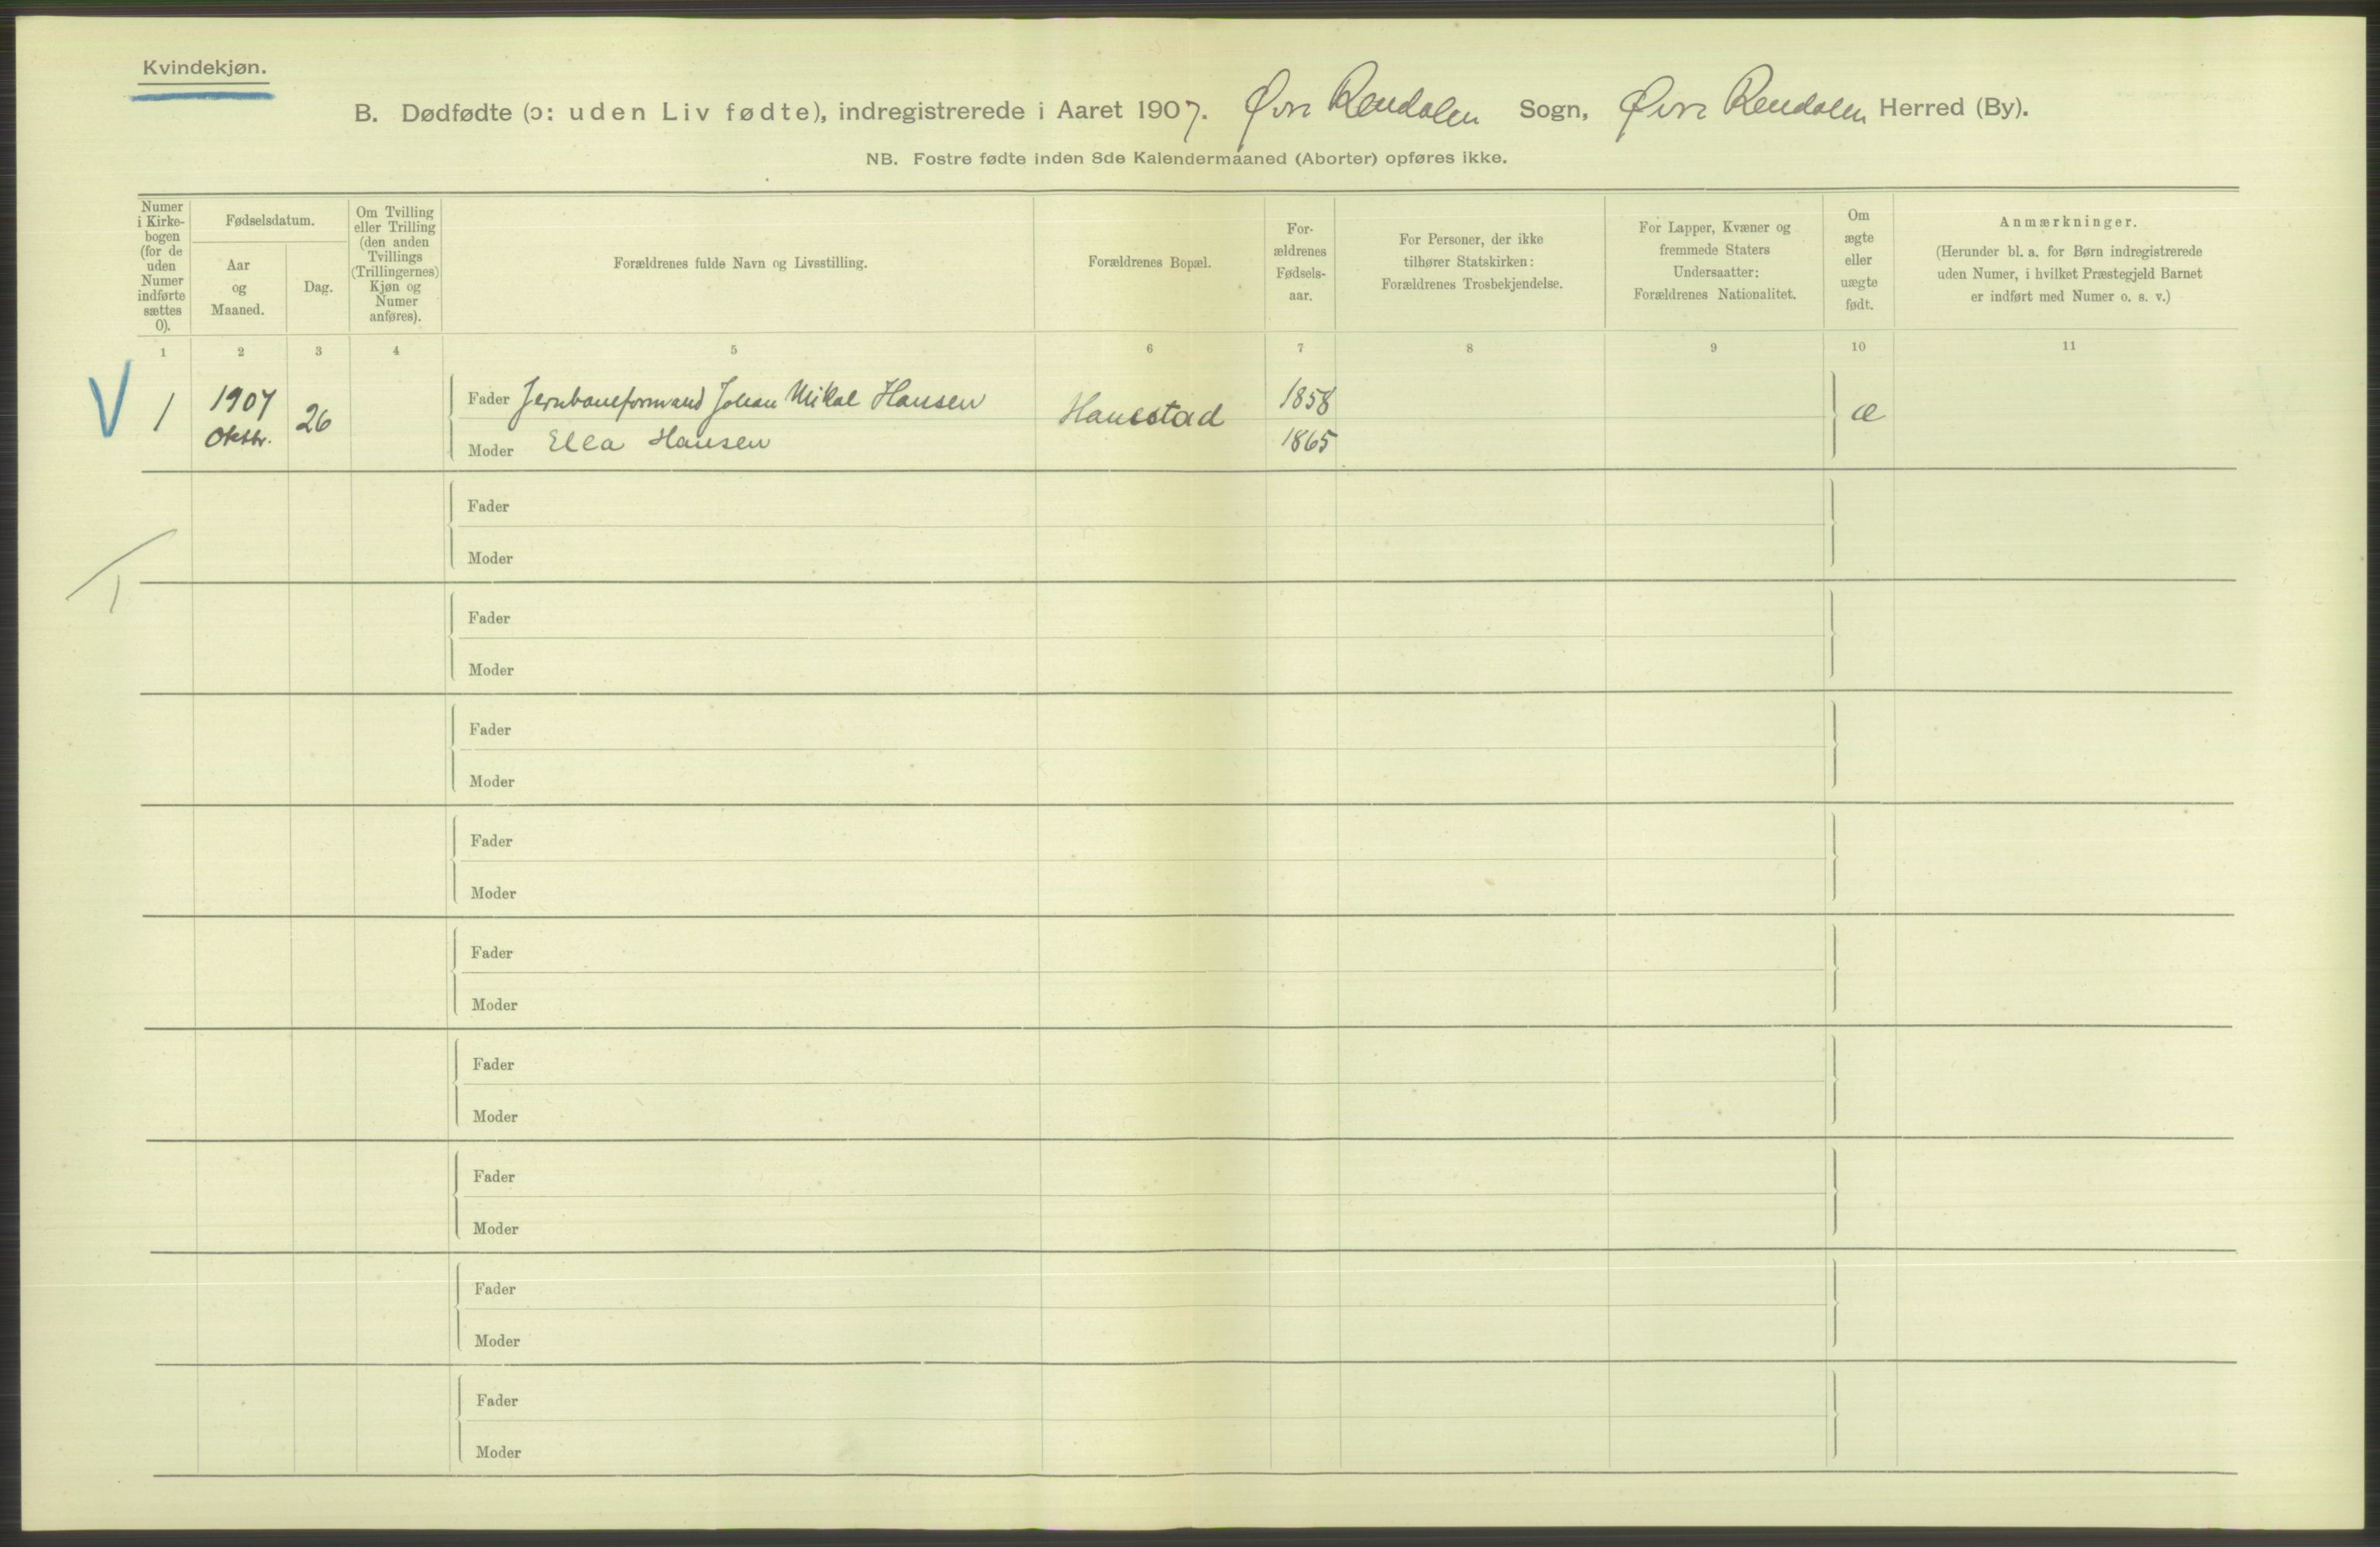 Kvindekjøn.
B. Dødfødte (ɔ: uden Liv fødte), indregistrerede i Aaret 1907. Øvre Rendalen Sogn, Øvre Rendalen Herred (By).
NB. Fostre fødte inden 8de Kalendermaaned (Aborter) opføres ikke.
Numer
i Kirke-
bogen
(for de
uden
Numer
indførte
sættes
0).
Fødselsdatum.
Aar
og
Maaned.
Dag.
Om Tvilling
eller Trilling
(den anden
Tvillings
(Trillingernes)
Kjøn og
Numer
anføres).
Forældrenes fulde Navn og Livsstilling.
Forældrenes Bopæl.
For-
ældrenes
Fødsels-
aar.
For Personer, der ikke
tilhører Statskirken:
Forældrenes Trosbekjendelse.
For Lapper, Kvæner og
fremmede Staters
Undersaatter:
Forældrenes Nationalitet.
Om
ægte
eller
uægte
født.
Anmærkninger.
(Herunder bl. a. for Børn indregistrerede
uden Numer, i hvilket Præstegjeld Barnet
er indført med Numer o. s. v.)
1 2 3 4 5 6 7 8 9 10 11
V 1 1907 Oktbr. 26
Fader Jernbaneformand Johan Mikal Hansen
Moder Ella Hansen
Hanestad
1858
1865
æ
Fader
Moder
1
Fader
Moder
Fader
Moder
Fader
Moder
Fader
Moder
Fader
Moder
Fader
Moder
Fader
Moder
Fader
Moder